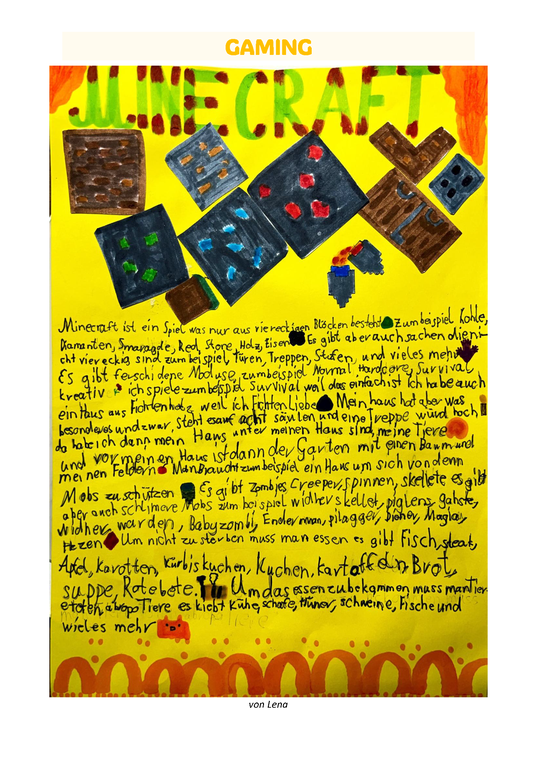 GAMING
MINECRAFT
Minecraft ist ein Spiel was nur aus viereckigen Blöcken besteht Zum beispiel Kohle,
Diamanten, Smaragde, Red Store, Holz, Eisen Es gibt aber auch sachen die ni-
cht viereckig sind zum beispiel, Türen, Treppen, Stufen, und vieles mehr
Es gibt ferschidene Moduse zum beispiel Normal Hardcore, Survival
kreativ ich spiele zum beispiel Survival weil das einfach ist Ich habe auch
ein Haus aus Fichtenholz, weil ich Fichten Liebe Mein haus hat aber was
besonderes und zwar, Steht es auf acht säulen und eine Treppe würd hoch
da habe ich dann mein Haus unter meinen Haus sind, meine Tiere
und vor meinen Haus ist dann der Garten mit einen Baum und
meinen Feldern Man Braucht zum beispiel ein Haus um sich von den
Mobs zu schützen Es gibt Zombjes Creeper, Spinnen, skellete es gibt
aber auch schlimere Mobs zum bei spiel widher skellet, piglens, gahste,
widher, warden, Babyzombi, Enderman, pilagger, Magla,
Hezen Um nicht zu sterben muss man essen es gibt Fisch, steak,
Apfel, Karotten, Kürbiskuchen, Kuchen, Kartoffeln, Brot,
suppe, Rotebete. Um das essen zu bekommen muss man Tier
e töten, Tiere es kiebt Kühe, schafe, Hüner, schweine, Fische und
wieles mehr
von Lena